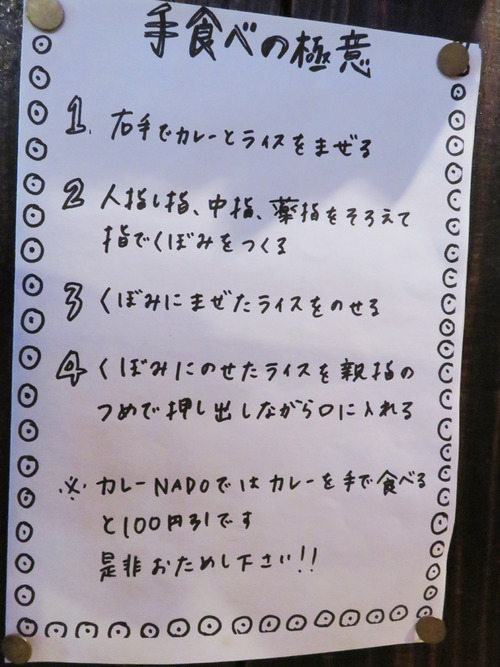 手食べの極意
1. 右手でカレーとライスをまぜる
2 人指し指、中指、薬指をそろえて
指でくぼみをつくる
3 くぼみにまぜたライスをのせる
4 くぼみにのせたライスを親指の
つめで押し出しながら口に入れる
※ カレーNADOではカレーを手で食べる
と100円引です
是非おためし下さい!!